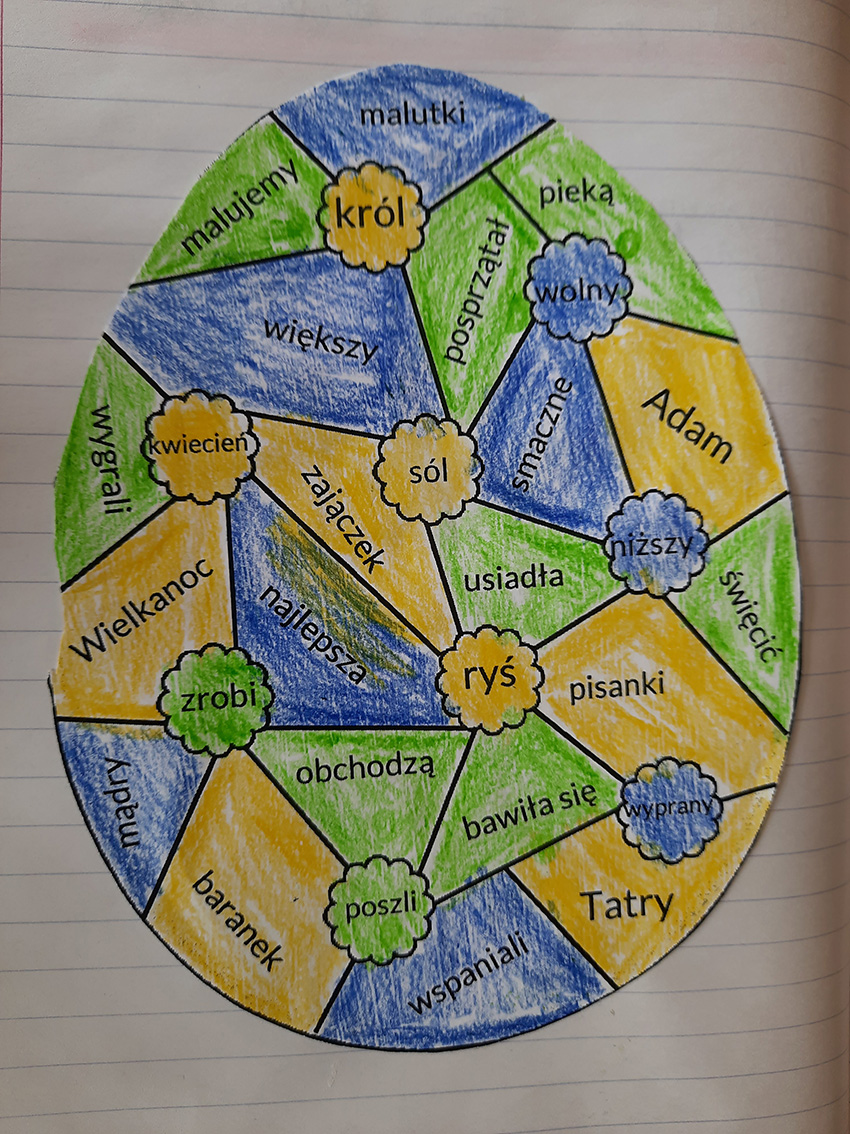 malutki
malujemy
król
pieką
posprzątał
wolny
większy
smaczne
Adam
wygrali
kwiecień
zajączek
sól
niższy
usiadła
święcić
Wielkanoc
najlepsza
zrobi
ryś
pisanki
mądry
obchodzą
bawiła się
wyprany
baranek
poszli
Tatry
wspaniali